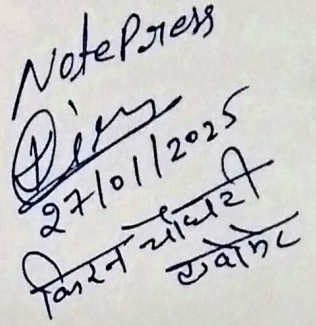 NotePress
27/01/2025
किरन चौधरी